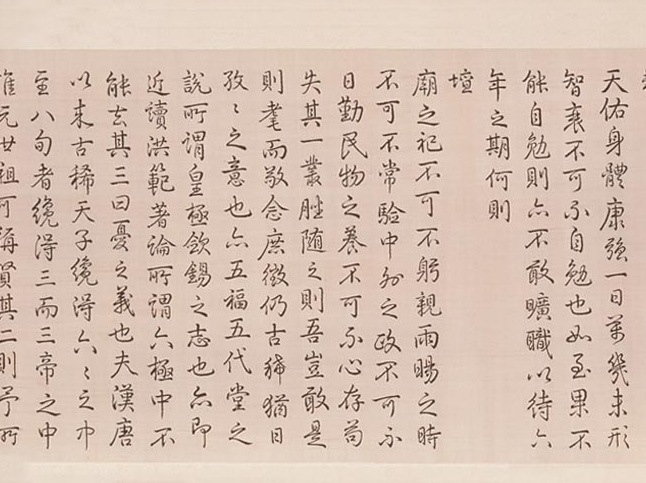 天佑身體康強一日萬幾未形
智衰不可不自勉也如至果不
能自勉則亦不敢曠職以待六
年之期何則
壇
廟之祀不可不躬親雨暘之時
不可不常驗中外之政不可不
日勤民物之養不可不心存苟
失其一叢脞随之則吾豈敢是
則耄而敬念庶徵仍古稀猶日
孜〻之意也亦五福五代堂之
說所謂皇極歛錫之志也亦即
近讀洪範著論所謂六極中不
能去其三曰憂之義也夫漢唐
以来古稀天子纔得六〻之中
至八旬者纔得三而三帝之中
惟元世祖可稱賢其二則予所